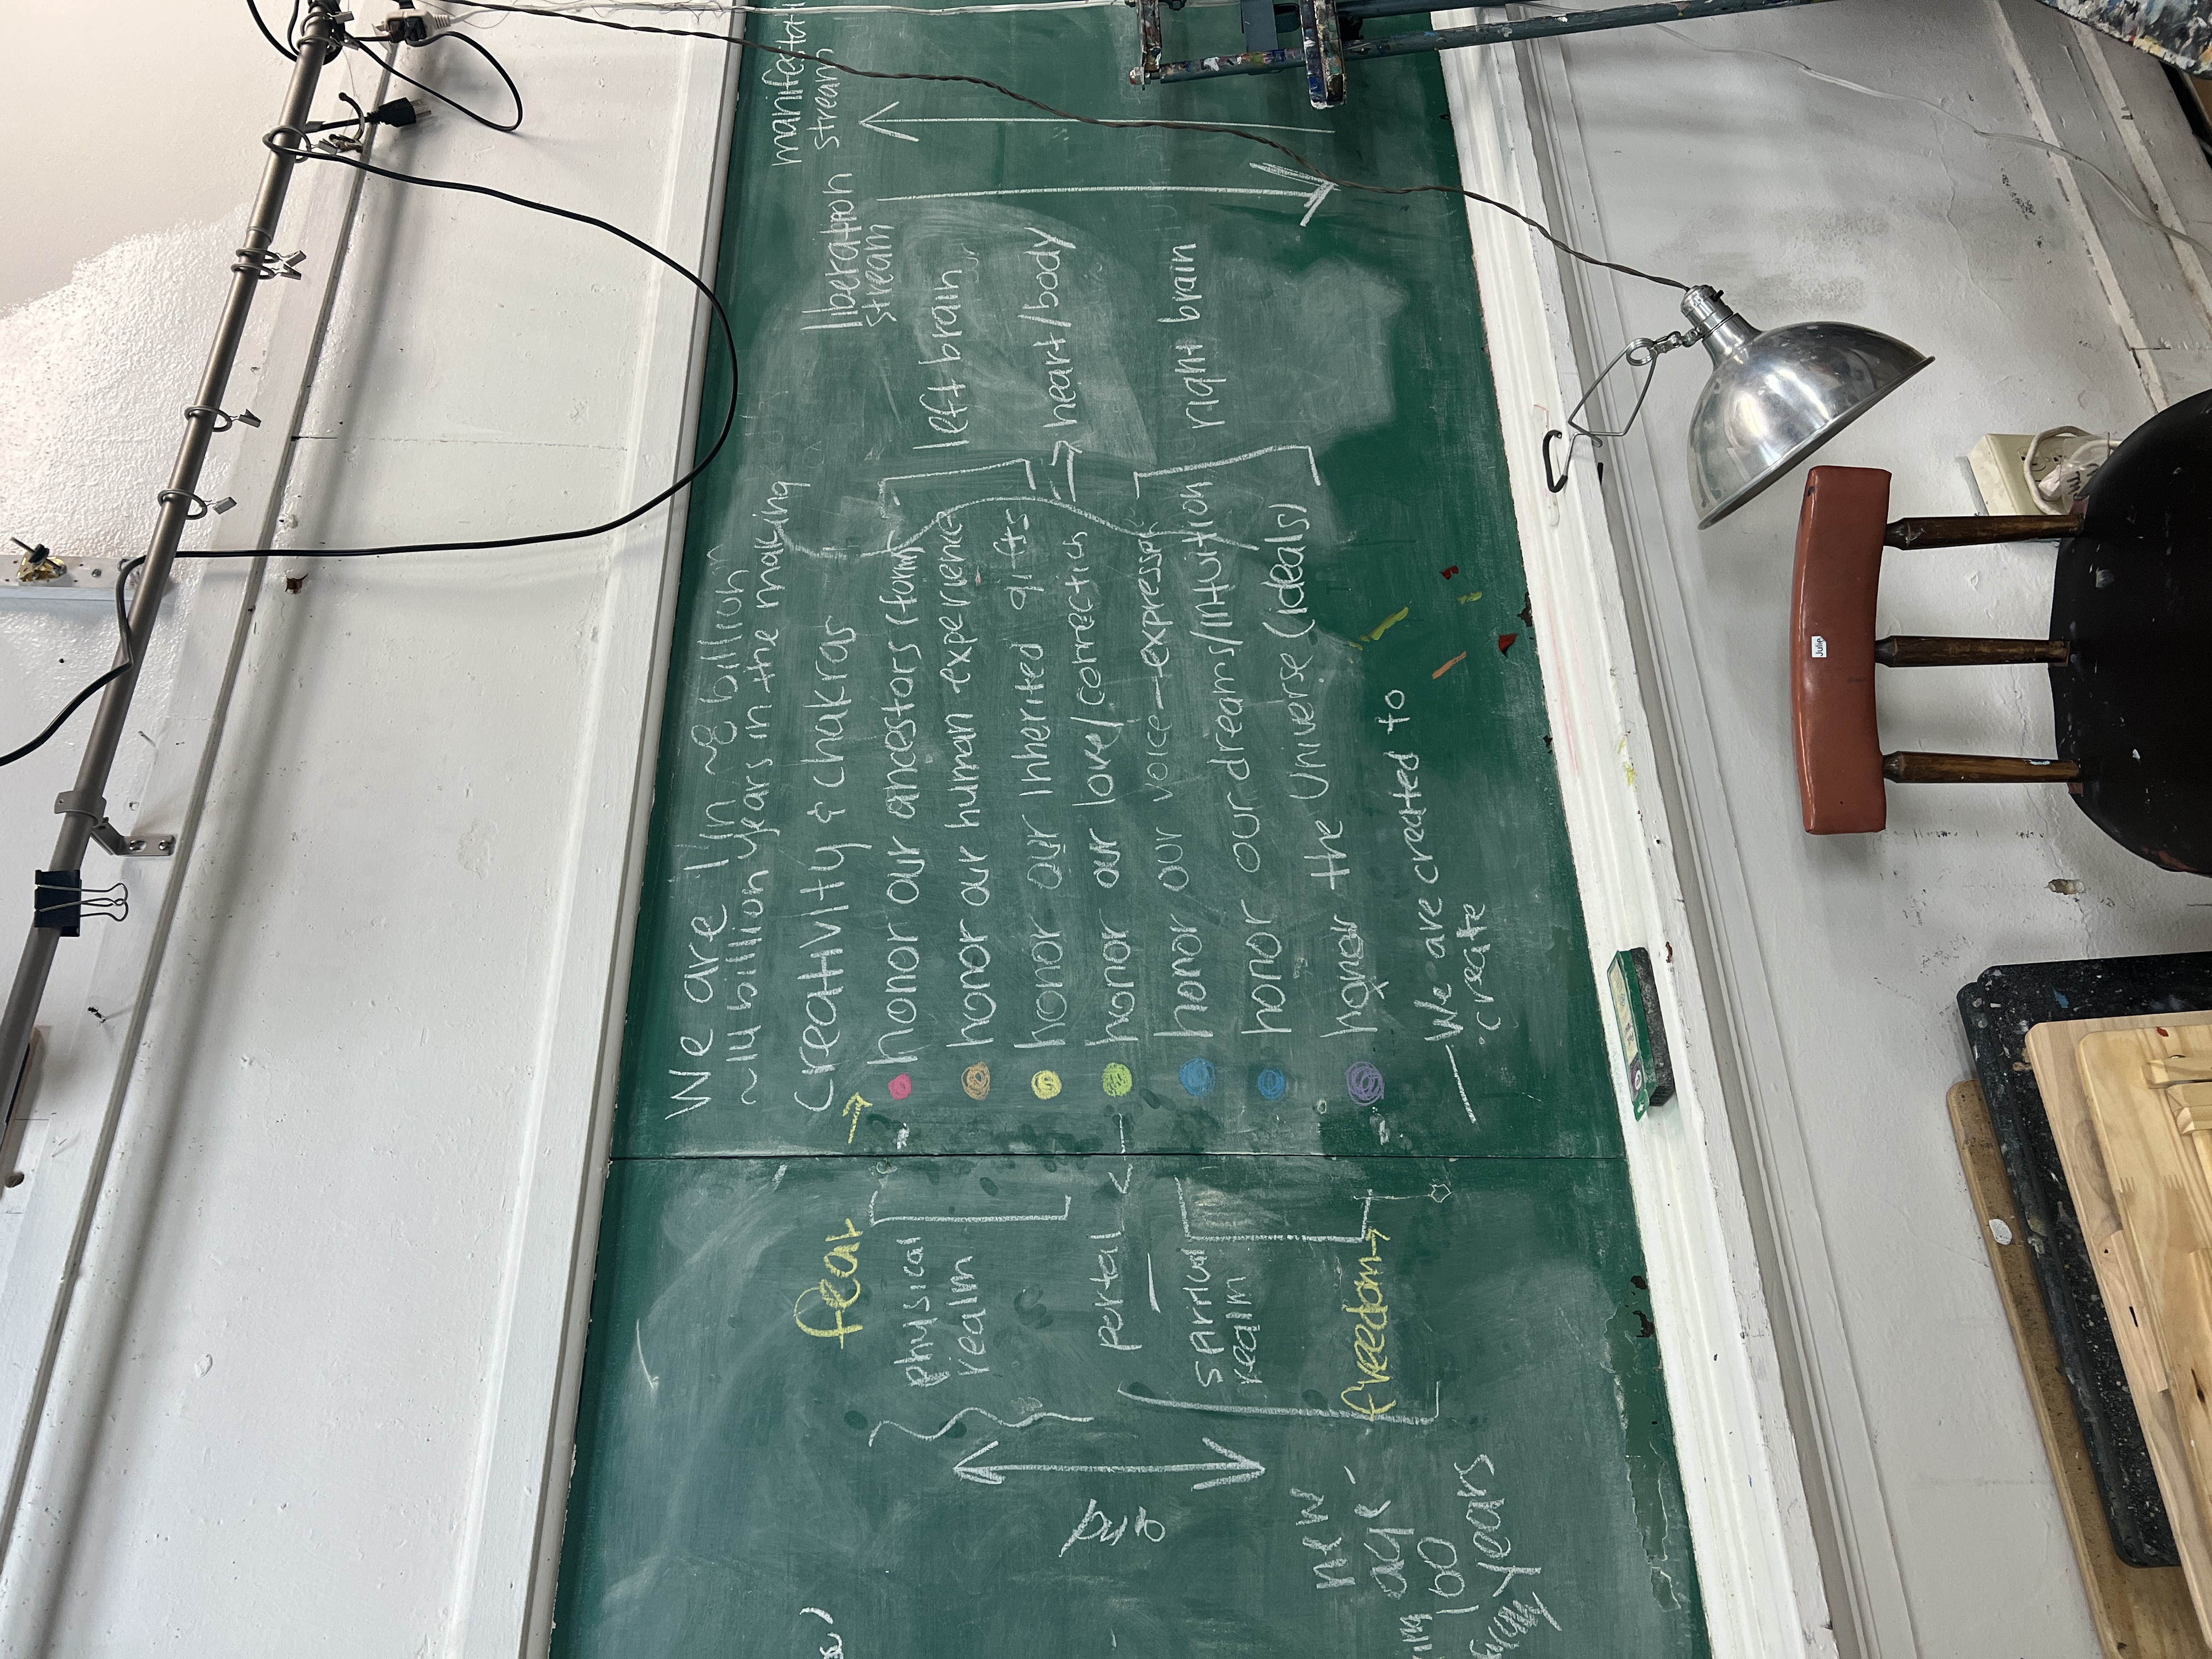 We are 1 in ~8 billion
billion years in the making
creativity & chakras
fear →
honor our ancestors (form)
honor our human experience
honor our inherited gifts
honor our love/connection
honor our voice – express
honor our dreams/intuition
honor the Universe (ideals)
— We are created to
create
physical
realm
portal
spiritual
realm
freedom →
left brain
heart/body
right brain
liberation
stream
stream
new
age -
160
years
Julie